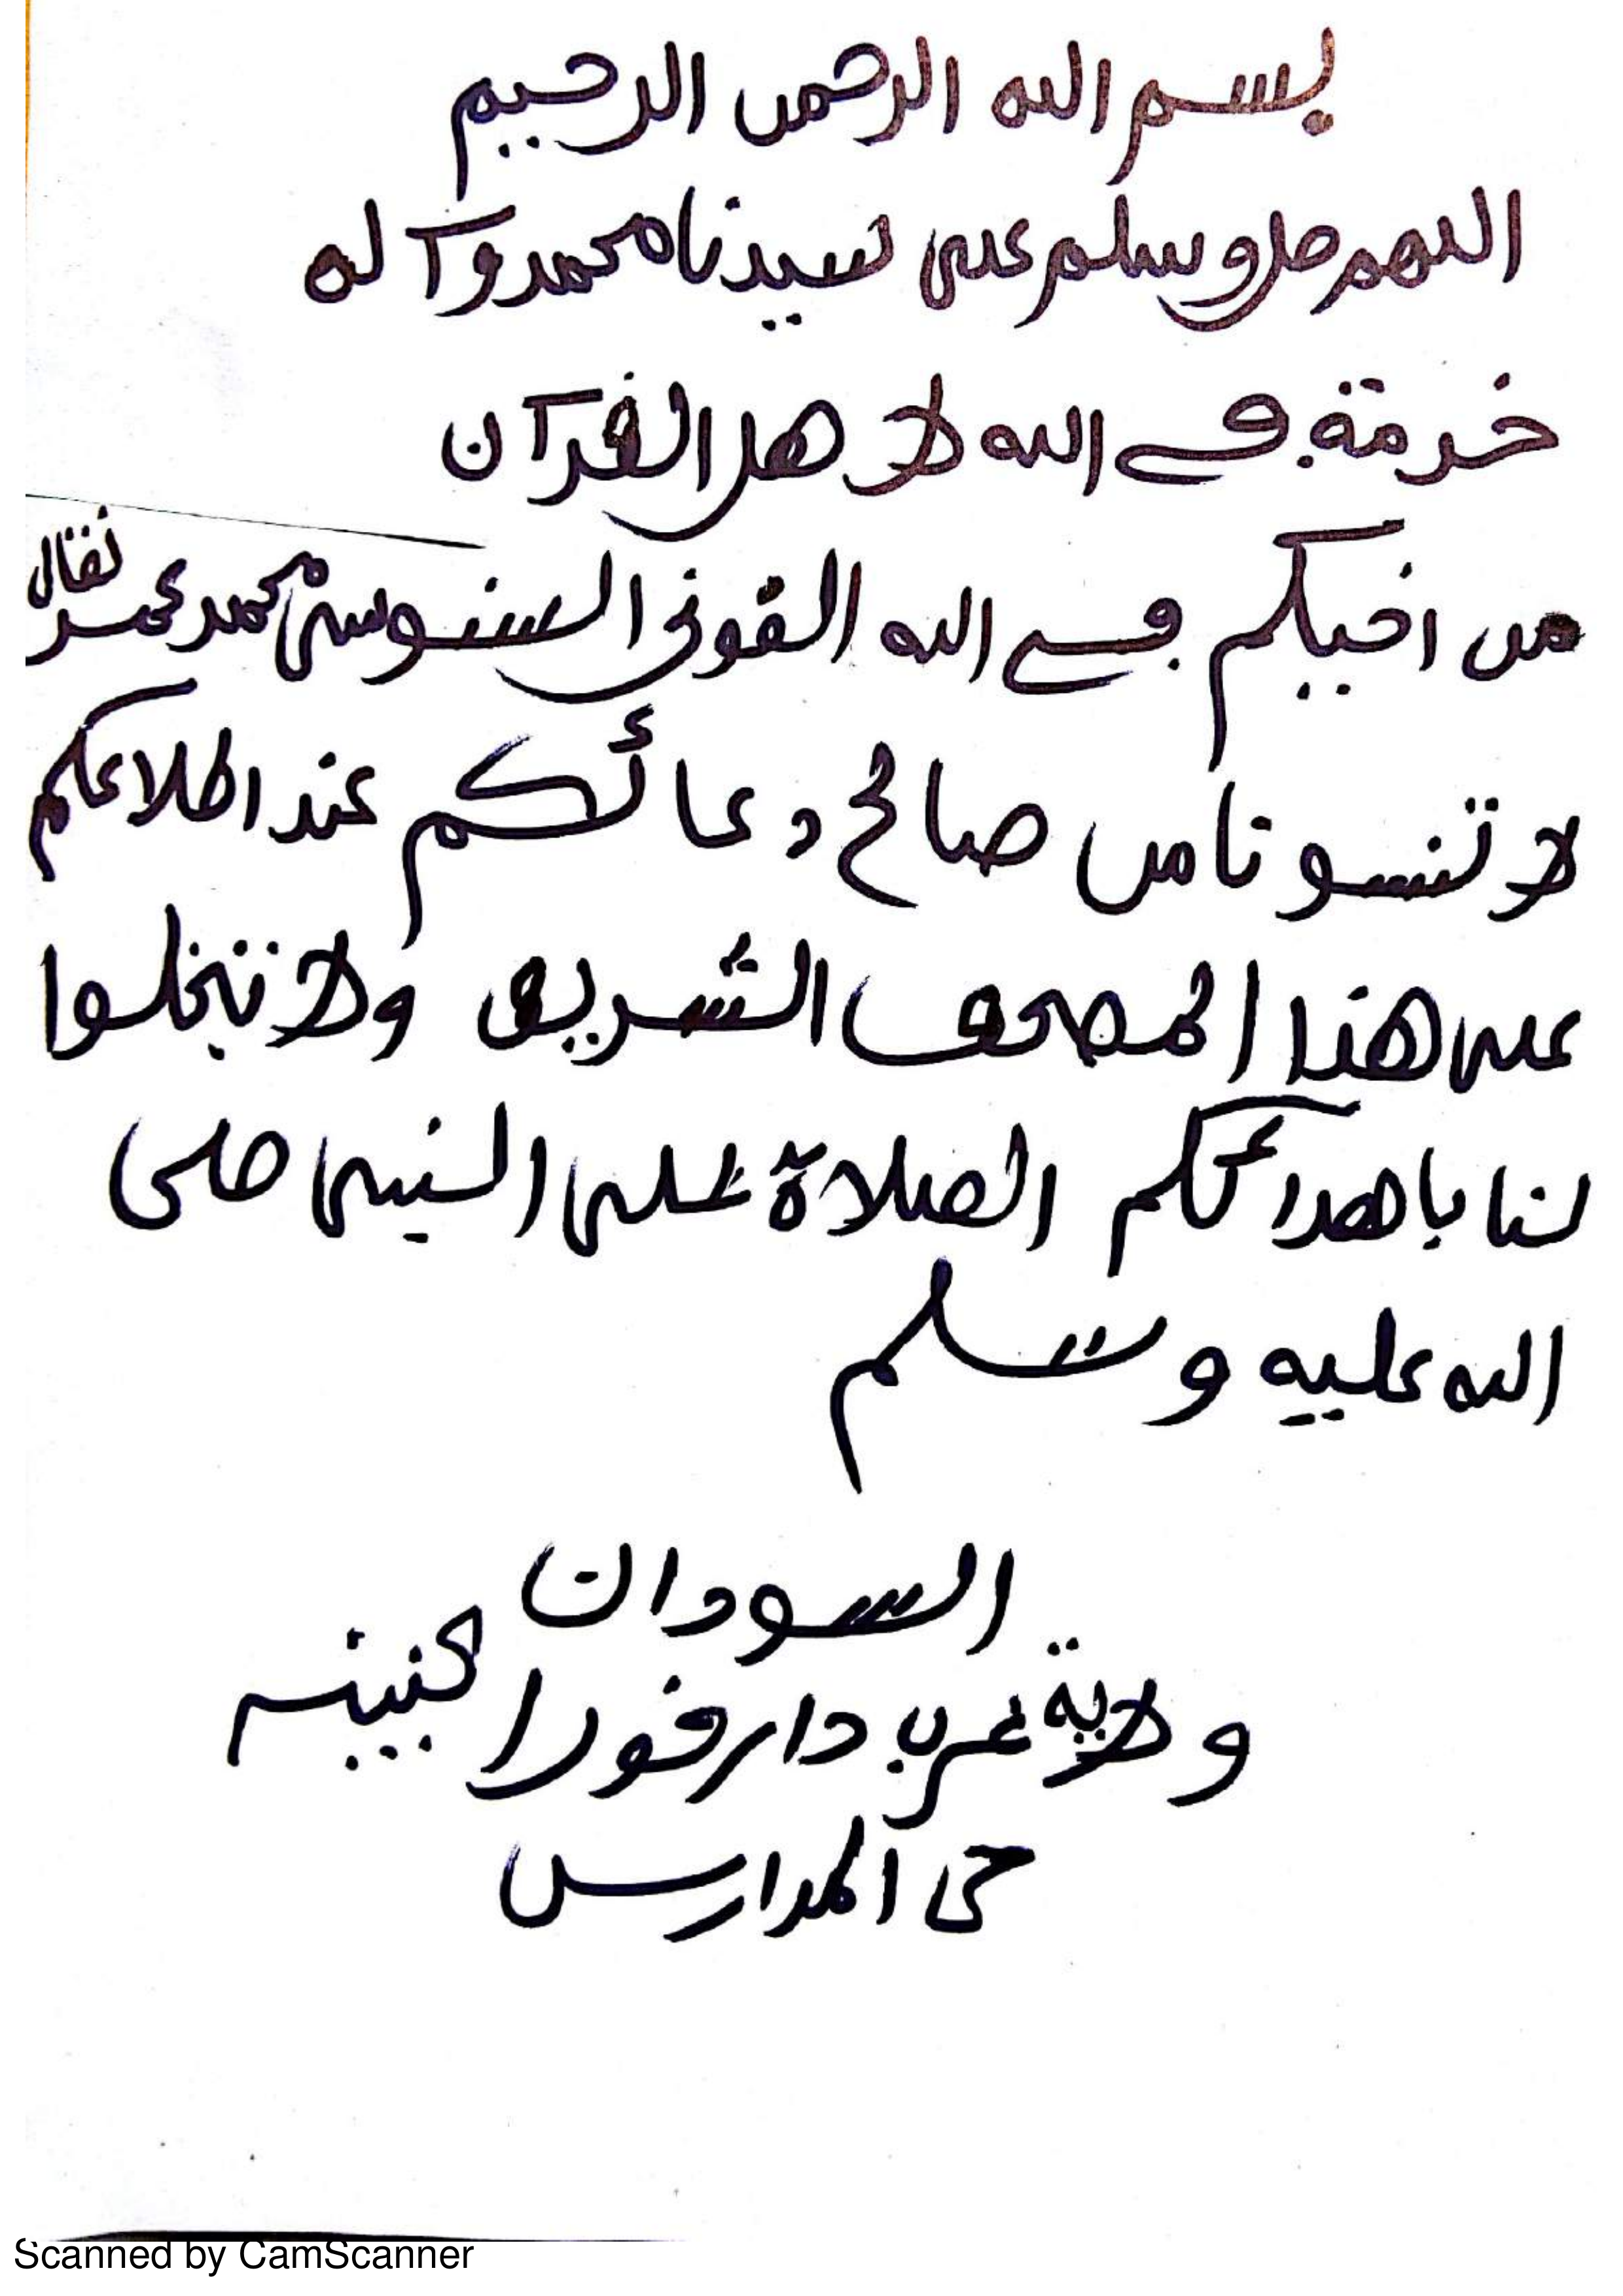 بسم الله الرحمن الرحيم
اللهم صل وسلم على سيدنا محمد وآله
خدمة في الله لاهل القرآن
من اخيكم في الله القوني السنوسي محمد عمر نقال
لا تنسونا من صالح دعائكم عند اطلاعكم
على هذا المصحف الشريف ولا تبخلوا
لنا باهدائكم الصلاة على النبي صلى
الله عليه وسلم
السودان
ولاية غرب دارفور الجنينه
حى المدارس
Scanned by CamScanner